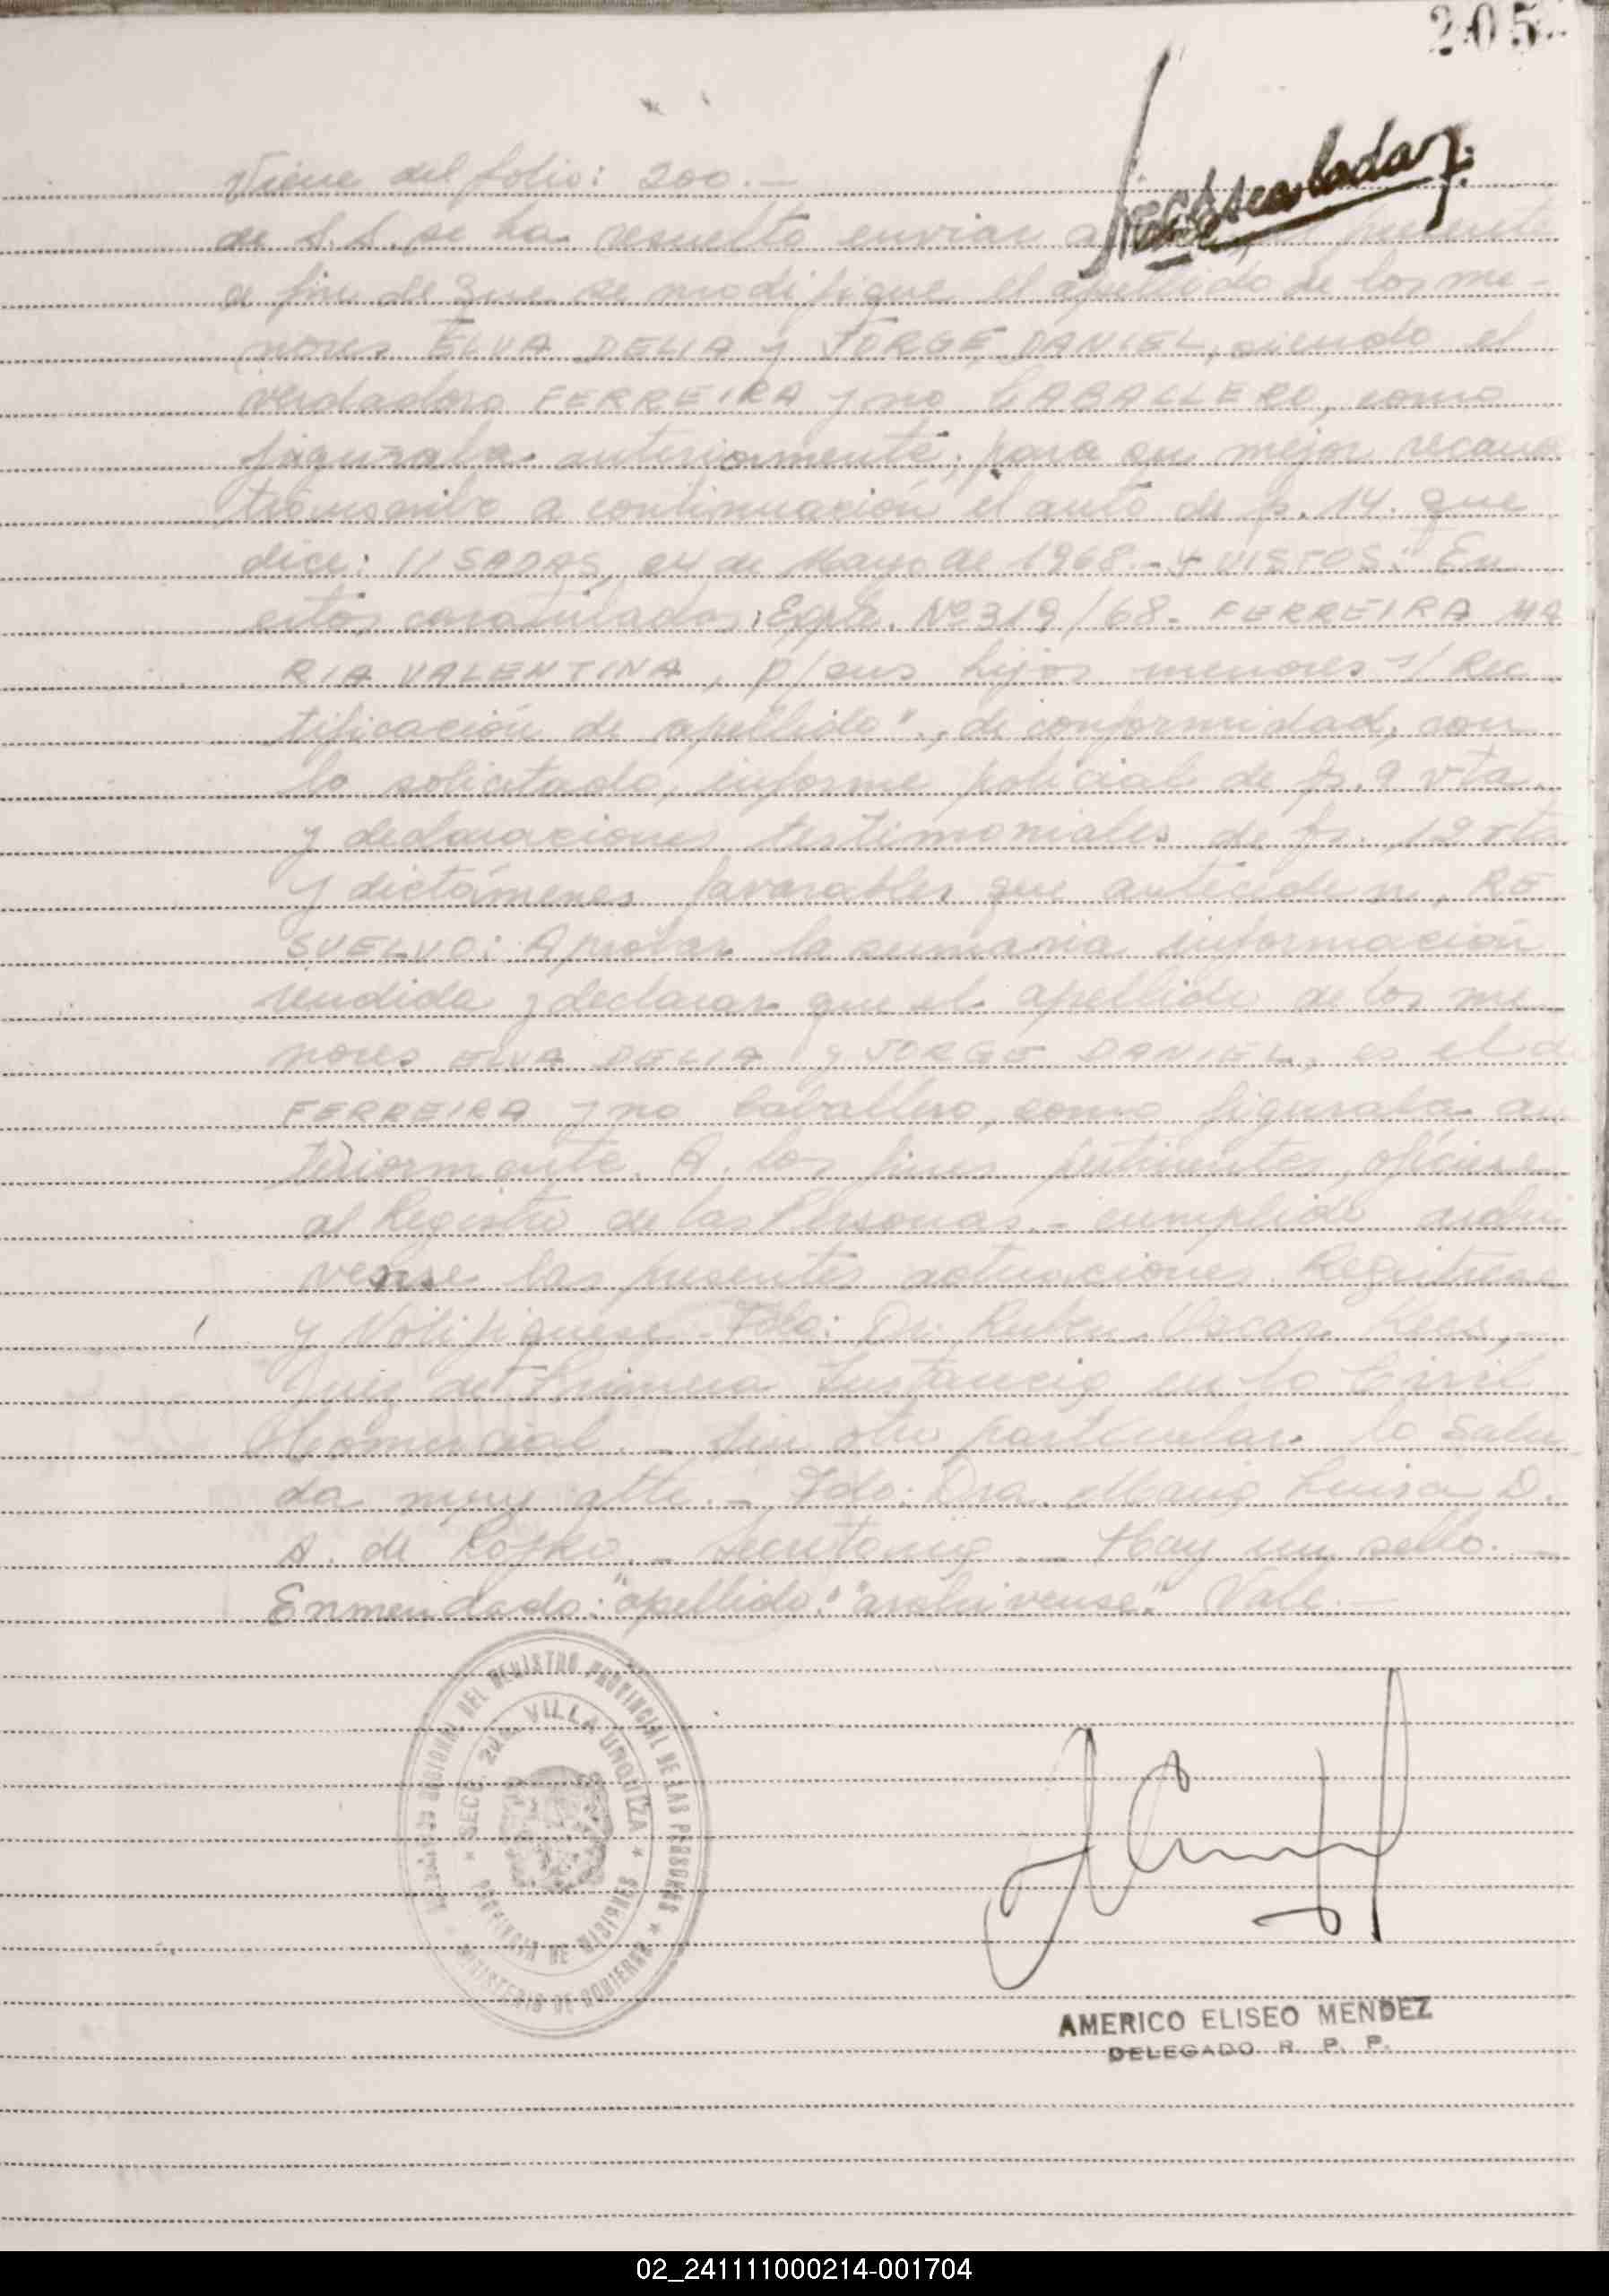 205
Viene del folio: 200.-
de S.S. se ha resuelto enviar a presente
a fin de que se modifique el apellido de los me-
nores ELVA DELIA y JORGE DANIEL, siendo el
verdadero FERREIRA y no CABALLERO, como
figuraba anteriormente, para su mejor recaudo
transcribo a continuación el auto de fs. 14. que
dice: //SADAS, 24 de Mayo de 1968.- Y VISTOS: En
estos caratulados: Expte. Nº 319/68- FERREIRA MA
RIA VALENTINA, p/sus hijos menores s/Rec
tificación de apellido", de conformidad, con
lo solicitado, informe policial de fs. 9 vta.
y declaraciones testimoniales de fs. 12 vta
y dictámenes favorables que anteceden, RE
SUELVO: Aprobar la sumaria información
rendida y declarar que el apellido de los me
nores ELVA DELIA y JORGE DANIEL, es el d
FERREIRA y no Caballero, como figuraba an
teriormente. A los fines pertinentes, ofíciese
al Registro de las Personas.- cumplido archi
vense las presentes actuaciones. Regístrese
y Notifíquese.- Fdo: Dr. Ruben Oscar
Juez de Primera Instancia en lo Civil
Comercial.- Sin otro particular lo salu
da muy atte.- Fdo: Dra. Maria Luisa D.
A. de - Secretaria.- Hay un sello.-
Enmendado: "apellido": "archivense". Vale.-
REGIONAL DEL REGISTRO PROVINCIAL DE LAS PERSONAS
MINISTERIO DE GOBIERNO
SECC. 2da. VILLA URQUIZA
PROVINCIA DE MISIONES
AMERICO ELISEO MENDEZ
DELEGADO R. P. P.
02_241111000214-001704